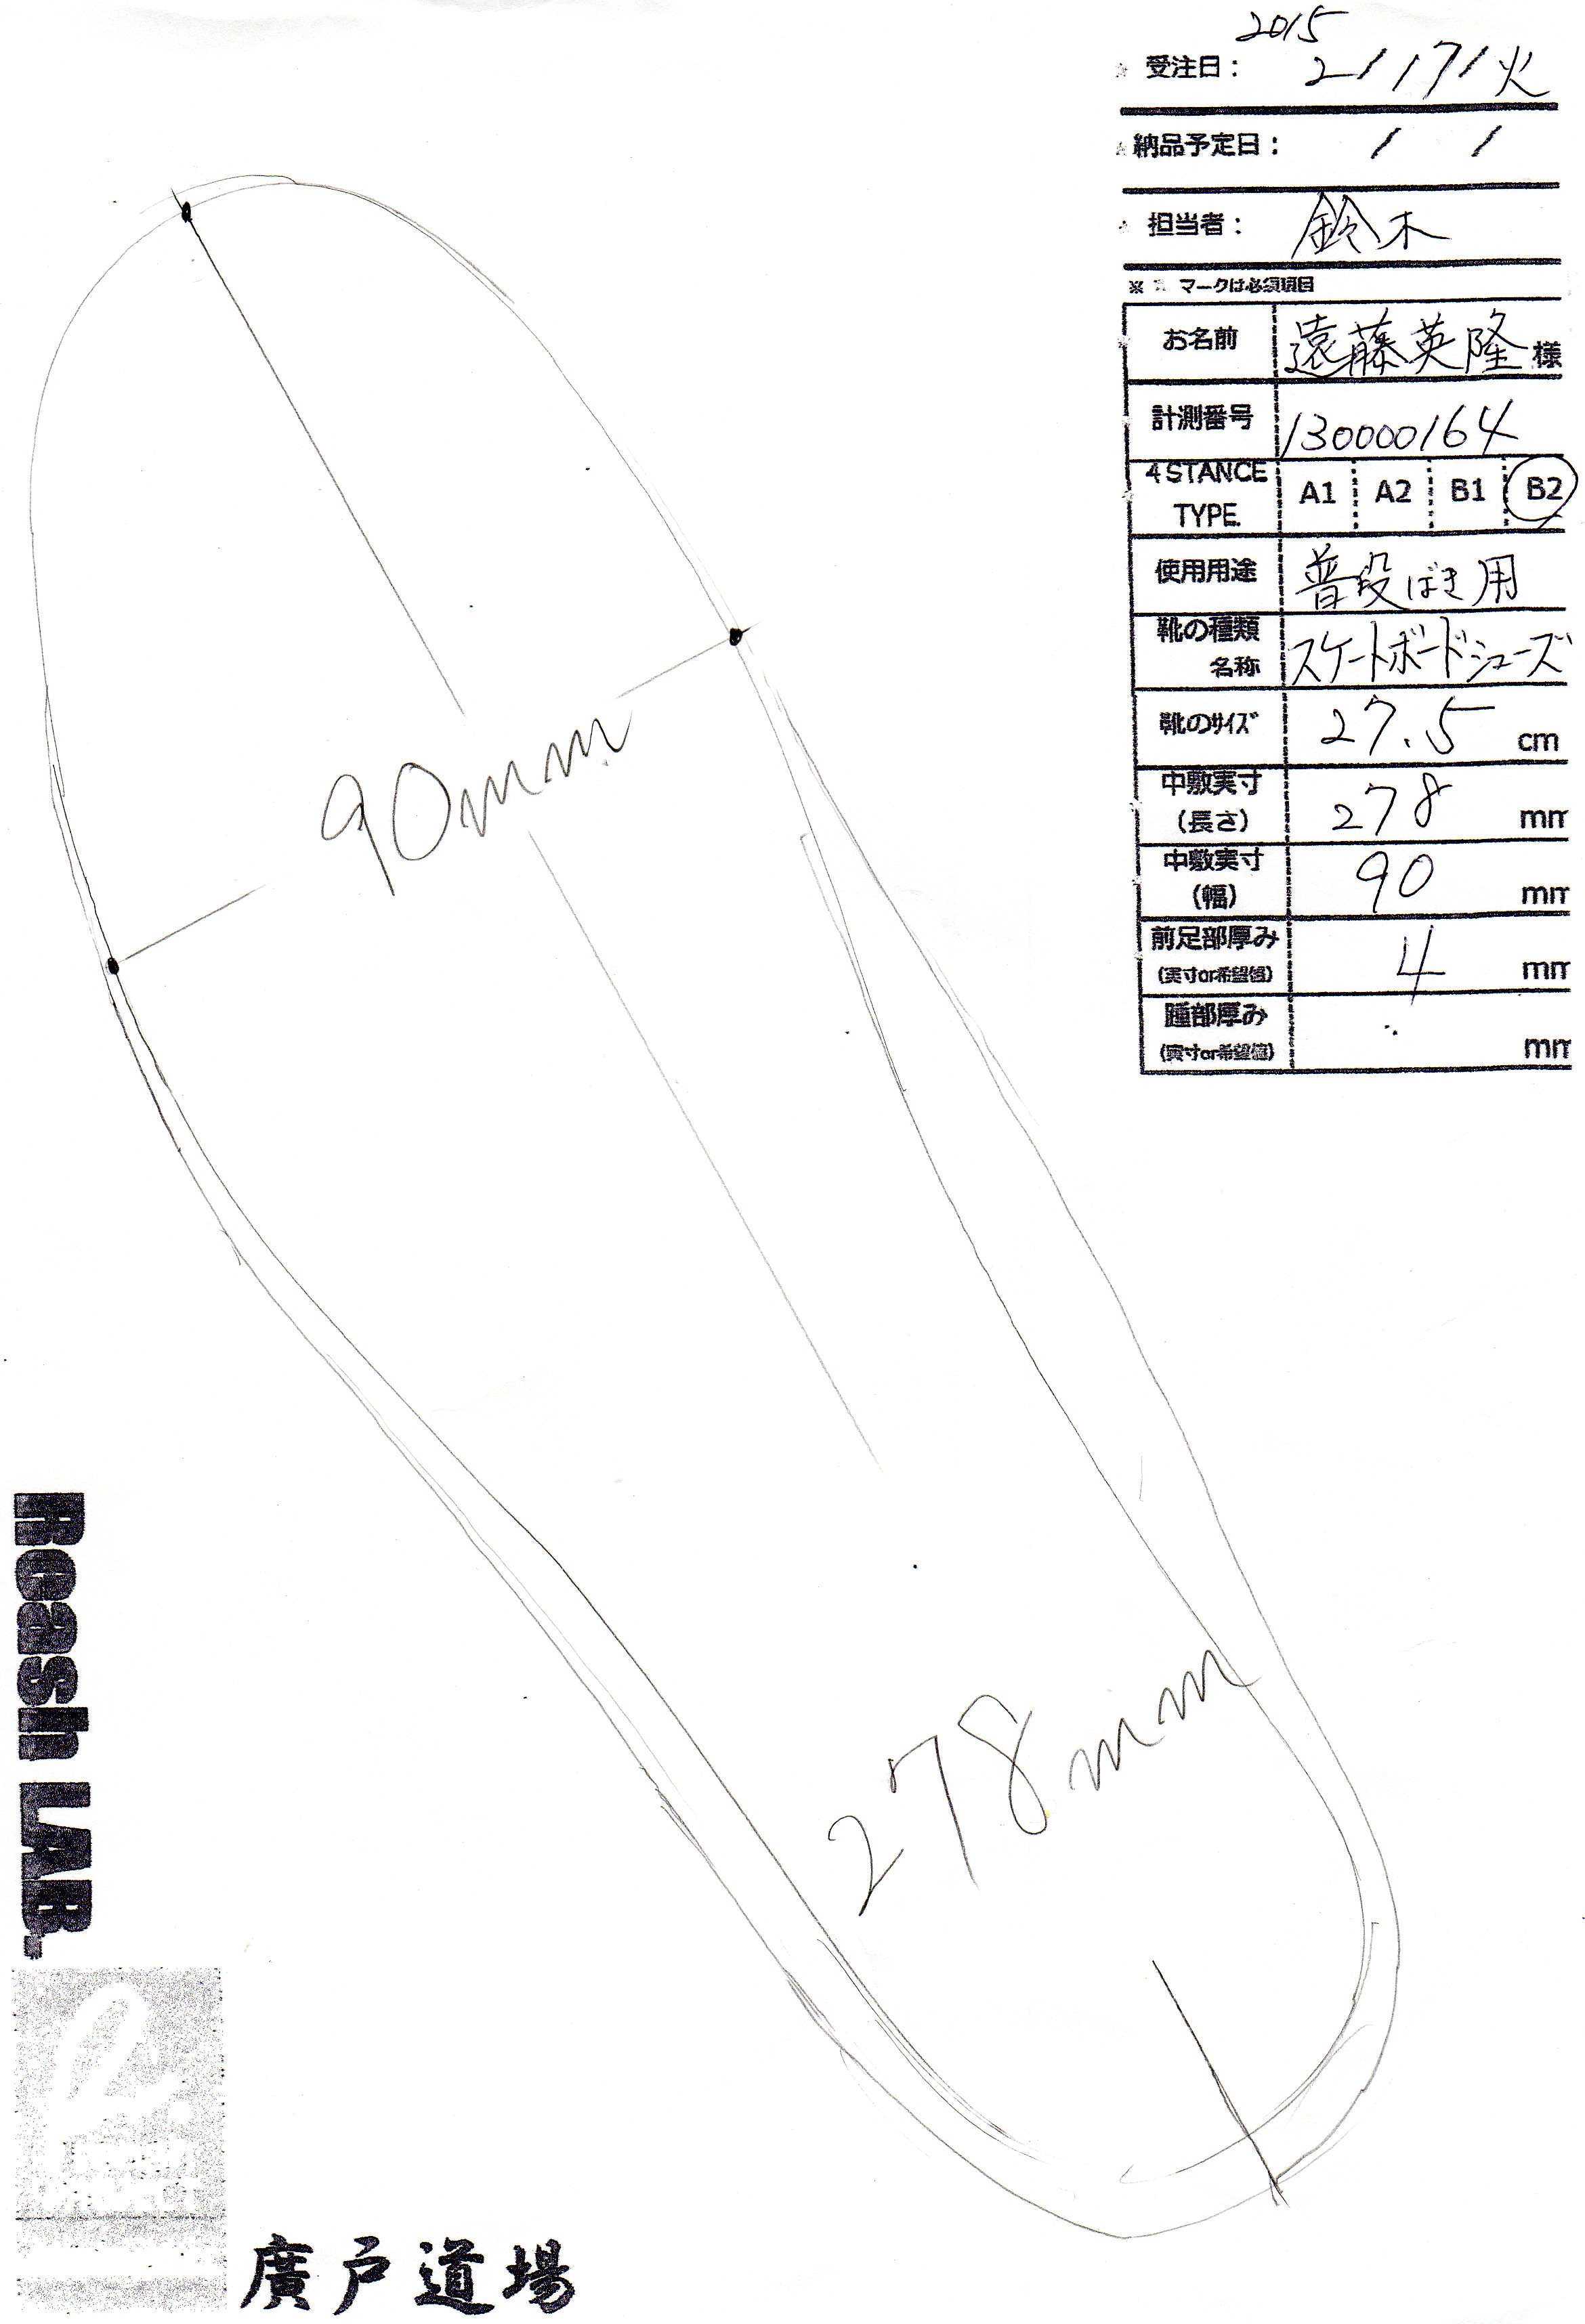 2015
☆ 受注日： 2/17/火
☆ 納品予定日： / /
☆ 担当者： 鈴木
※ ☆ マークは必須項目
お名前 遠藤英隆 様
計測番号 130000164
4STANCE TYPE. A1 A2 B1 B2
使用用途 普段ばき用
靴の種類 名称 スケートボードシューズ
靴のサイズ 27.5 cm
中敷実寸 (長さ) 278 mm
中敷実寸 (幅) 90 mm
前足部厚み (実寸or希望値) 4 mm
踵部厚み (実寸or希望値) mm
90mm
278mm
Reash LAB.
廣戸道場